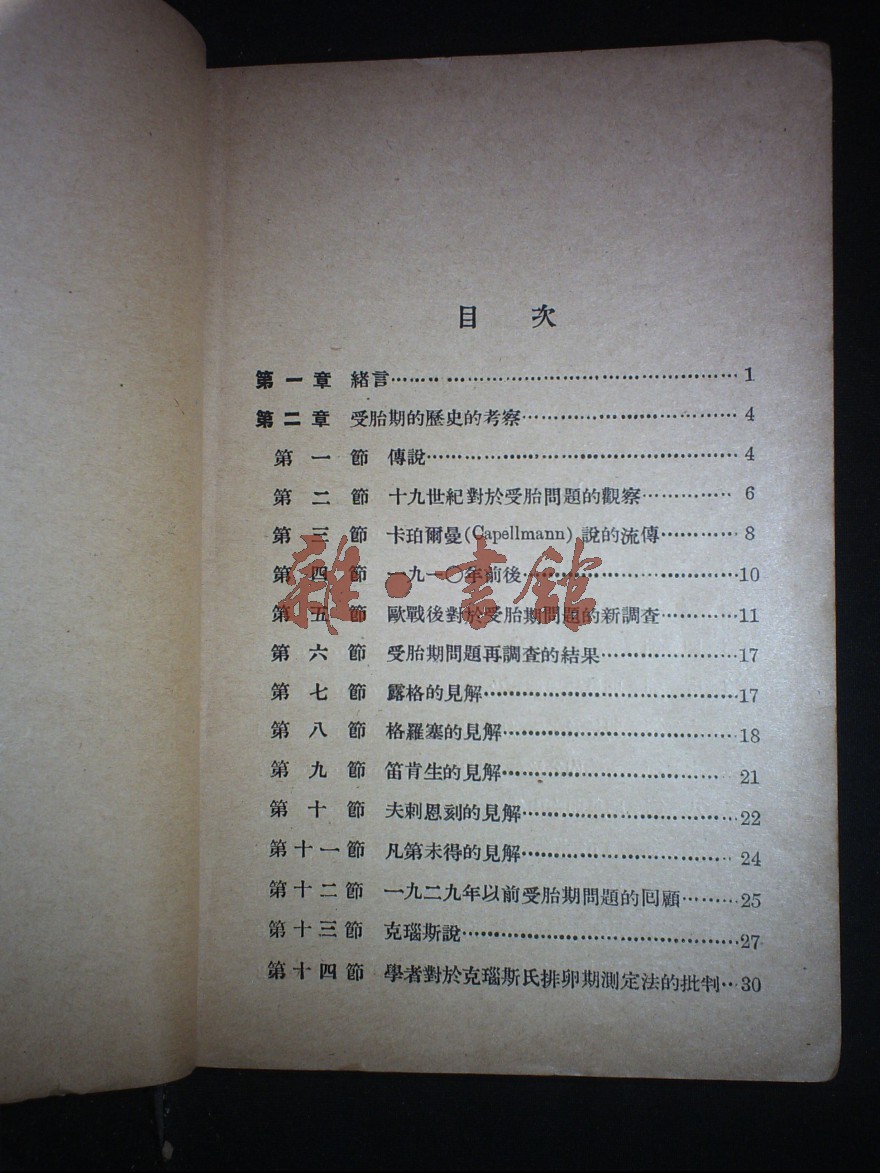 目 次
第一章 緒言……………………………………1
第二章 受胎期的歷史的考察……………………4
第一節 傳說……………………………………4
第二節 十九世紀對於受胎問題的觀察…………6
第三節 卡珀爾曼(Capellmann)說的流傳…………8
第四節 一九一〇年前後…………………………10
第五節 歐戰後對於受胎期問題的新調查…………11
第六節 受胎期問題再調查的結果………………17
第七節 露格的見解……………………………17
第八節 格羅塞的見解…………………………18
第九節 笛肯生的見解…………………………21
第十節 夫剌恩刻的見解…………………………22
第十一節 凡第未得的見解………………………24
第十二節 一九二九年以前受胎期問題的回顧……25
第十三節 克瑙斯說………………………………27
第十四節 學者對於克瑙斯氏排卵期測定法的批判…30
雜·書館